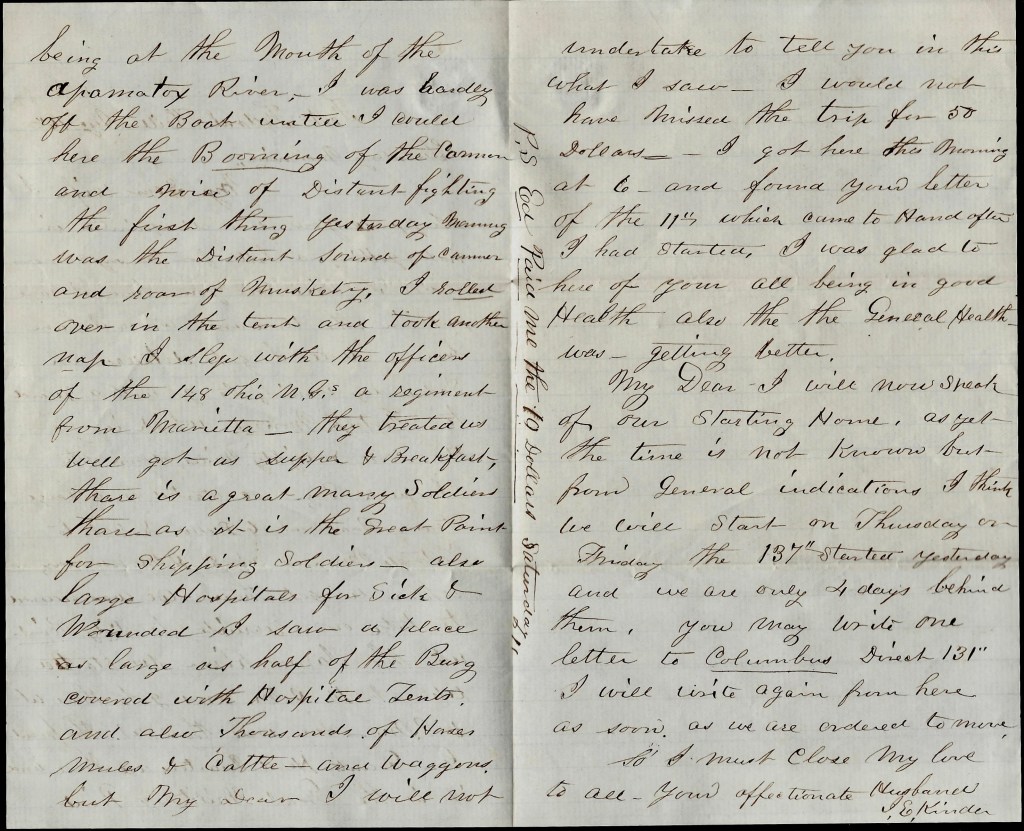 being at the Mouth of the
apamatox River, - I was hardley
off the Boat untill I could
here the Booming of the Cannon
and noice of Distant fighting
the first thing yesterday Morning
was the Distant Sound of Cannon
and roar of Musketry. I rolled
over in the tent and took another
nap I Slep with the officers
of the 148 Ohio N.G.s a regiment
from Marietta - they treated us
well got us supper & Breakfast,
thare is a great many Soldiers
thare as it is the Great Point
for Shipping Soldiers - also
large Hospitals for Sick &
Wounded I saw a place
as large as half of the Burg
covered with Hospital Tents.
and also Thousands of Horses
Mules & Cattle - and Waggons.
but My Dear I will not
P,S Ed Paid me the 10 Dollars Saturday
undertake to tell you in this
what I saw - I would not
have Missed the trip for 50
Dollars - - I got here this Morning
at 6 - and found your letter
of the 11th which came to Hand after
I had Started, I was glad to
here of your all being in good
Health also the the General Health
was - getting better.
My Dear - I will now Speak
of our Starting Home, as yet
the time is not Known but
from General indications I think
we will Start on Thursday or
Friday the 137" Started yesterday
and we are only 4 days behind
them, you may write one
letter to Columbus Direct 131"
I will write again from here
as soon. as we are ordered to move
So I must Close My love
to all - Your affectionate Husband
I,E,Kinder